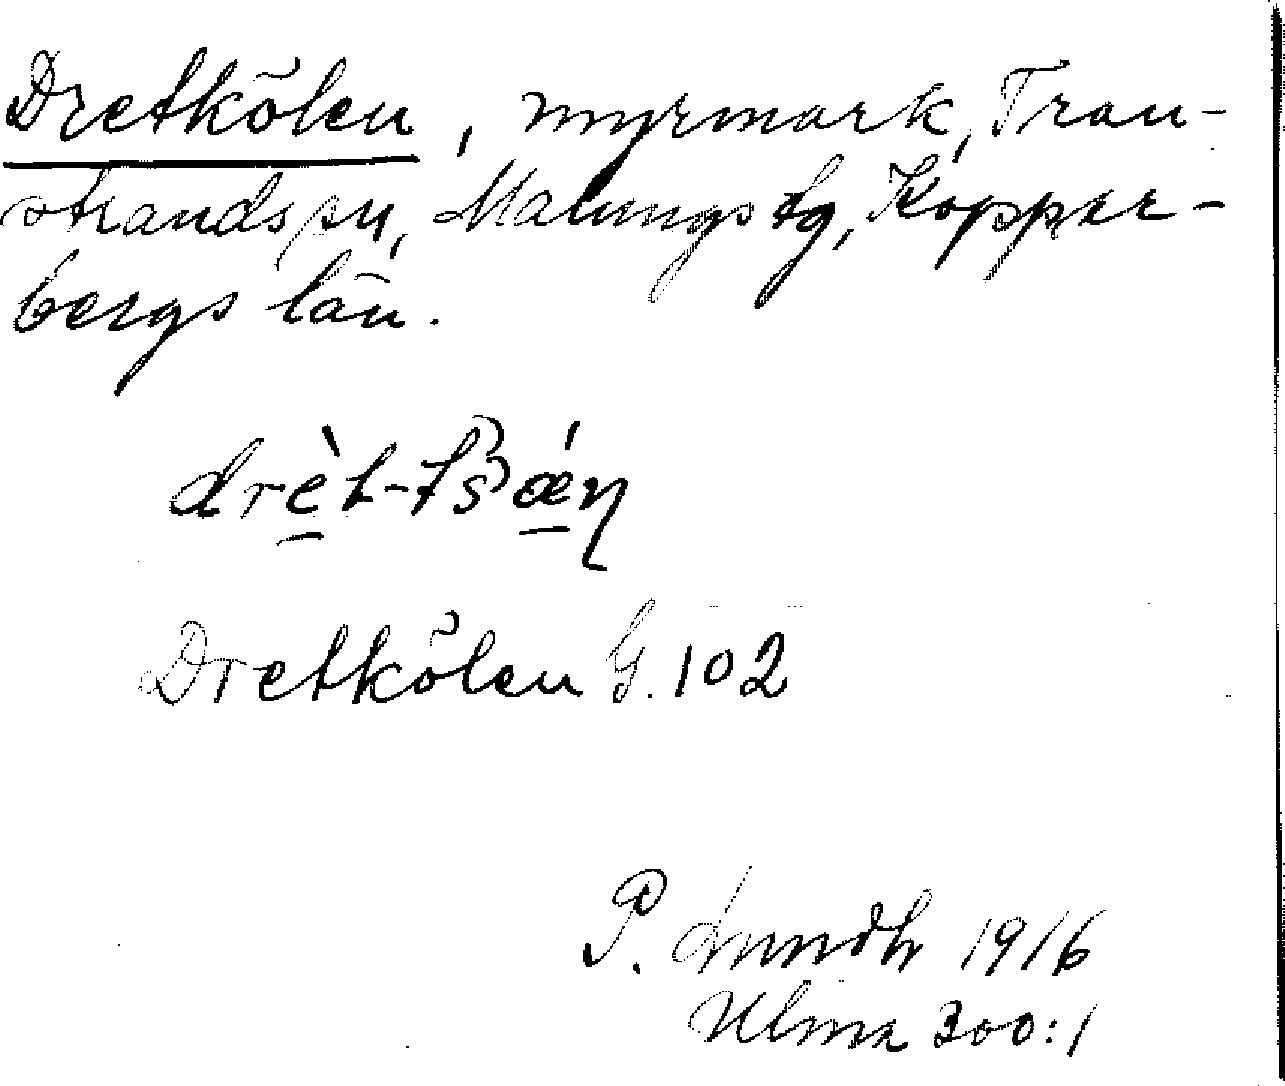 Dretkölen, myrmark, Tran-
strands sn, Malungs tg, Koppar-
bergs län.
drèt-tš́ǽn
Dretkölen G. 102
P. Lundh 1916
Ulma 300:1